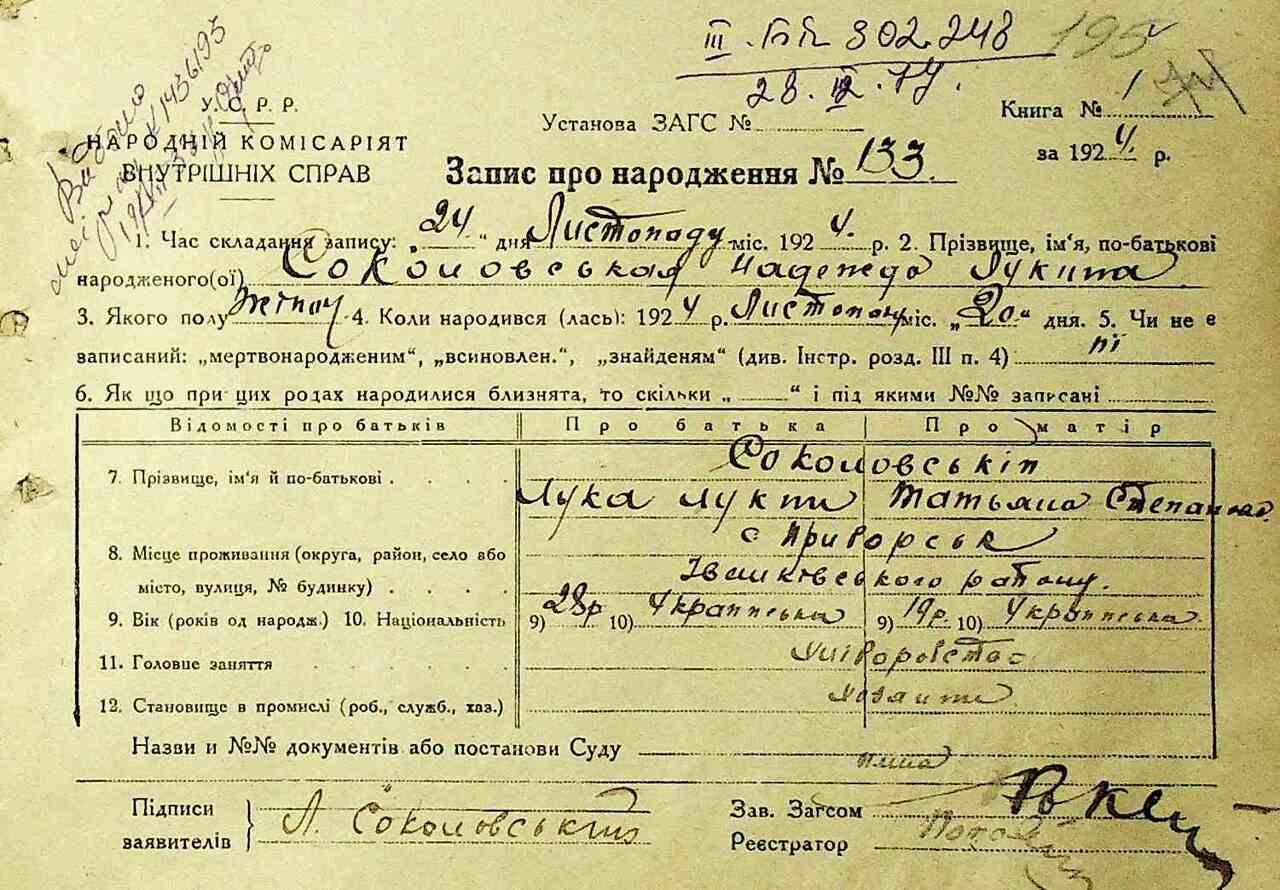 ІІІ. БК 802.248 195
28. ІІІ. 77.
Видано
У. С. Р. Р.
НАРОДНІЙ КОМІСАРІЯТ
ВНУТРІШНІХ СПРАВ
Установа ЗАГС №
Книга № 1
за 1924 р.
Запис про народження № 133.
1. Час складання запису: „24“ дня Листопаду міс. 1924. р. 2. Прізвище, ім'я, по-батькові
народженого(ої) Соколовськая Надежда Лукита
3. Якого полу жіноч 4. Коли народився (лась): 1924 р. Листопад міс. „20“ дня. 5. Чи не є
записаний: „мертвонародженим“, „всиновлен.“, „знайденям“ (див. Інстр. розд. III п. 4) ні
6. Як що при цих родах народилися близнята, то скільки „ “ і під якими №№ записані
Відомості про батьків Про батька Про матір
7. Прізвище, ім'я й по-батькові Соколовські
Лука Лукич Татьяна Степанов.
8. Місце проживання (округа, район, село або с Приборськ
місто, вулиця, № будинку) Іванківського району.
9. Вік (років од народж.) 10. Національність 9) 28р 10) Українська 9) 19р. 10) Українська
11. Головне заняття Хліборобство
12. Становище в промислі (роб., служб., хаз.) Хозяити
Назви и №№ документів або постанови Суду
Підписи
заявителів Л. Соколовський
Зав. Загсом
Реєстратор